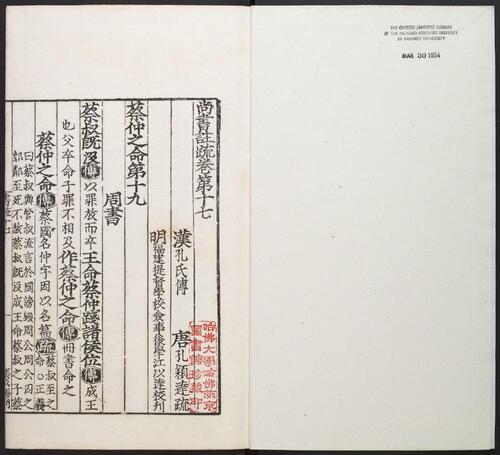 尚書註疏卷第十七
漢孔氏傳 唐孔穎達疏
明福建提督學校僉事後學江以達校刋
蔡仲之命第十九
周書
蔡叔既沒傳以罪放而卒王命蔡仲踐諸侯位傳成王
也父卒命子罪不相及作蔡仲之命傳冊書命之
蔡仲之命傳蔡國名仲字因以名篇疏蔡叔至之命○正義
曰蔡叔與管叔流言於國謗毀周公周公囚之
郭鄰至死不赦蔡叔既沒成王命蔡叔之子蔡
哈佛大學哈佛燕京
圖書館珍藏印
THE CHINESE-JAPANESE LIBRARY
OF THE HARVARD-YENCHING INSTITUTE
AT HARVARD UNIVERSITY
MAR 30 1954